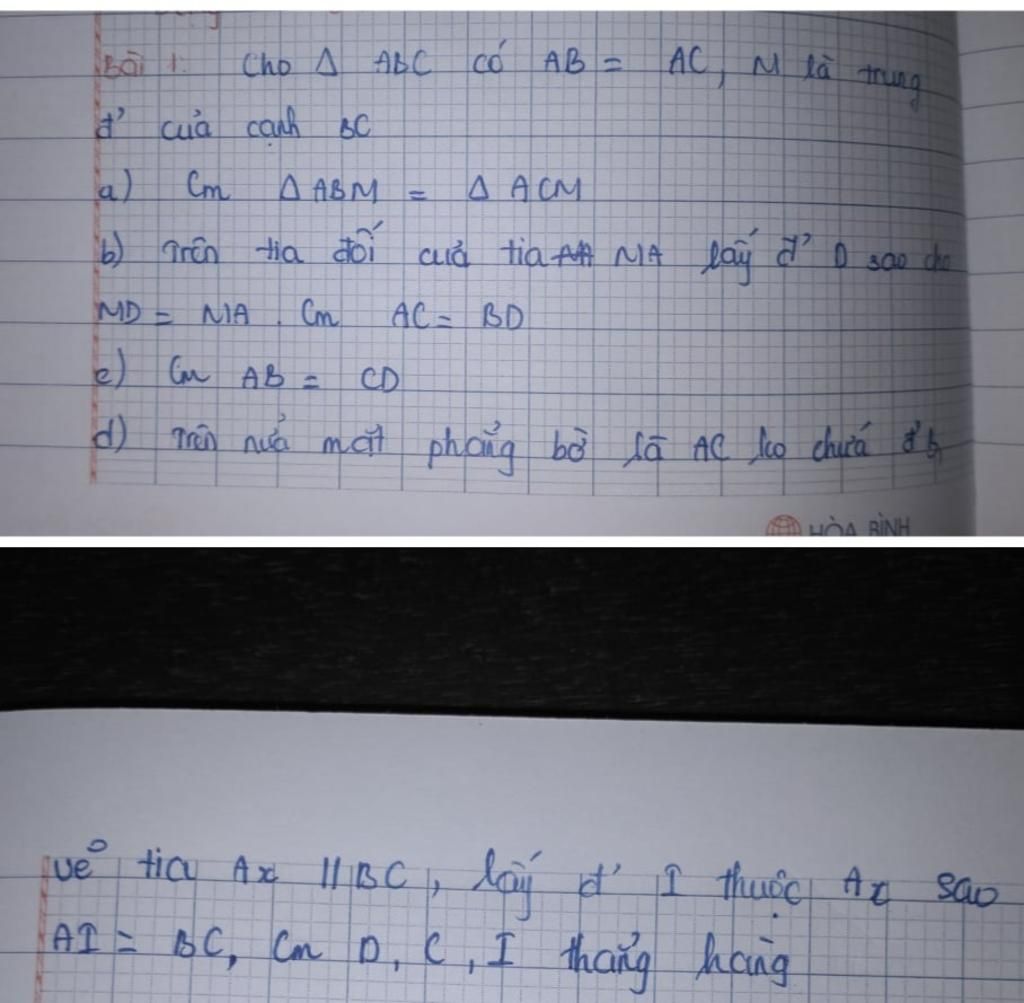 Bài 1: Cho Δ ABC có AB = AC, M là trung
đ' của cạnh BC
a) Cm Δ ABM = Δ ACM
b) Trên tia đối của tia MA lấy đ' D sao cho
MD = MA. Cm AC = BD
c) Cm AB = CD
d) Trên nửa mặt phẳng bờ là AC chứa đ'
HÒA BÌNH
vẽ tia Ax // BC, lấy đ' I thuộc Ax sao
AI = BC, Cm D, C, I thẳng hàng